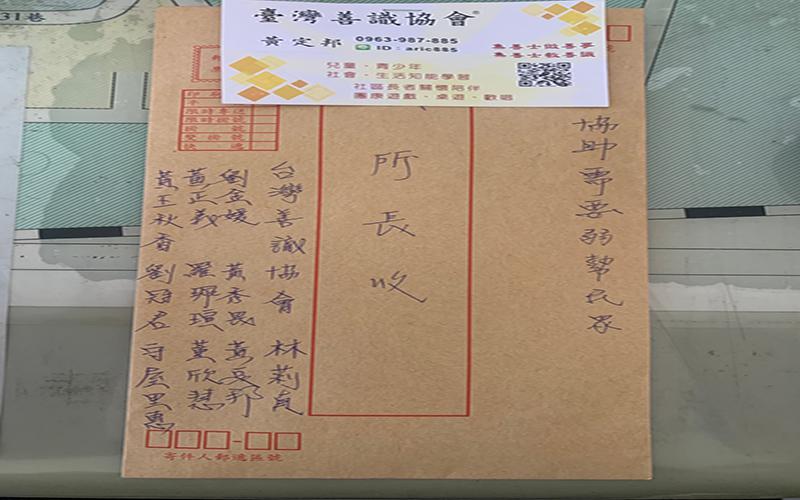 31巷
臺灣善識協會®
黃定邦 0963-987-885
ID:aric885
為善士做善事
為善士教善識
兒童、青少年
社會、生活知能學習
社區長者關懷陪伴
團康遊戲、桌遊、歡唱
限時專送
限時掛號
掛號
雙掛號
快遞
協助需要弱勢民眾
所長收
台灣善識協會 林莉貞
劉金媛 黃秀
黃正義 羅珮瑄 董欣慧
黃王秋香 劉冠 守屋里惠
寄件人郵遞區號